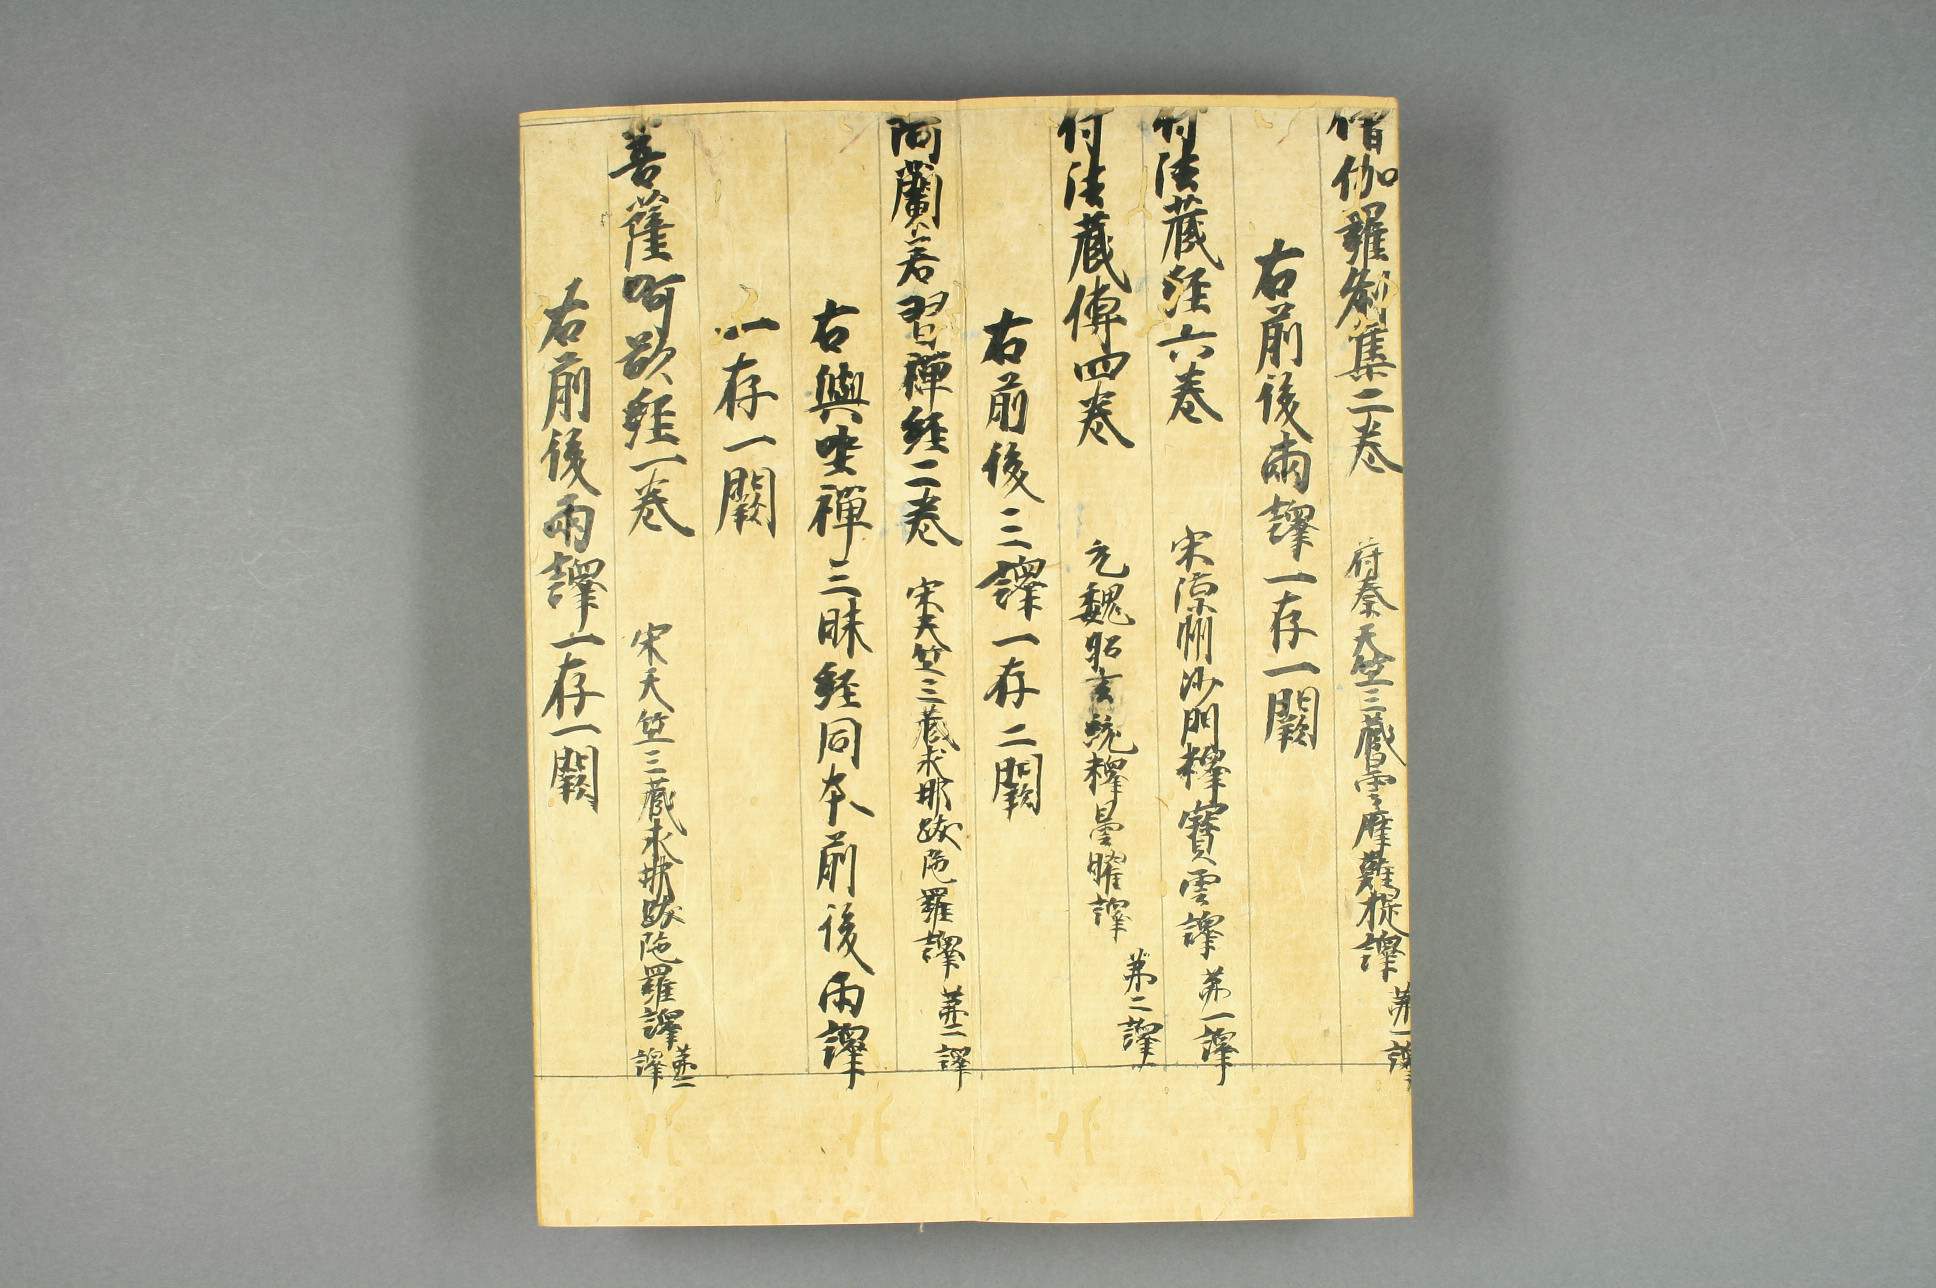 僧伽羅刹集二卷 符秦天竺三藏曇摩難提譯 苐一譯
右前後兩譯一存一闕
付法藏經六卷 宋涼州沙門釋寶雲譯 苐一譯
付法藏傳四卷 元魏昭玄統釋曇曜譯 苐二譯
右前後三譯一存二闕
阿蘭若習禪經二卷 宋天竺三藏求那跋陀羅譯 苐二譯
右與坐禪三昧經同本前後兩譯
一存一闕
菩薩呵欲經一卷 宋天竺三藏求那跋陀羅譯 苐二譯
右前後兩譯一存一闕